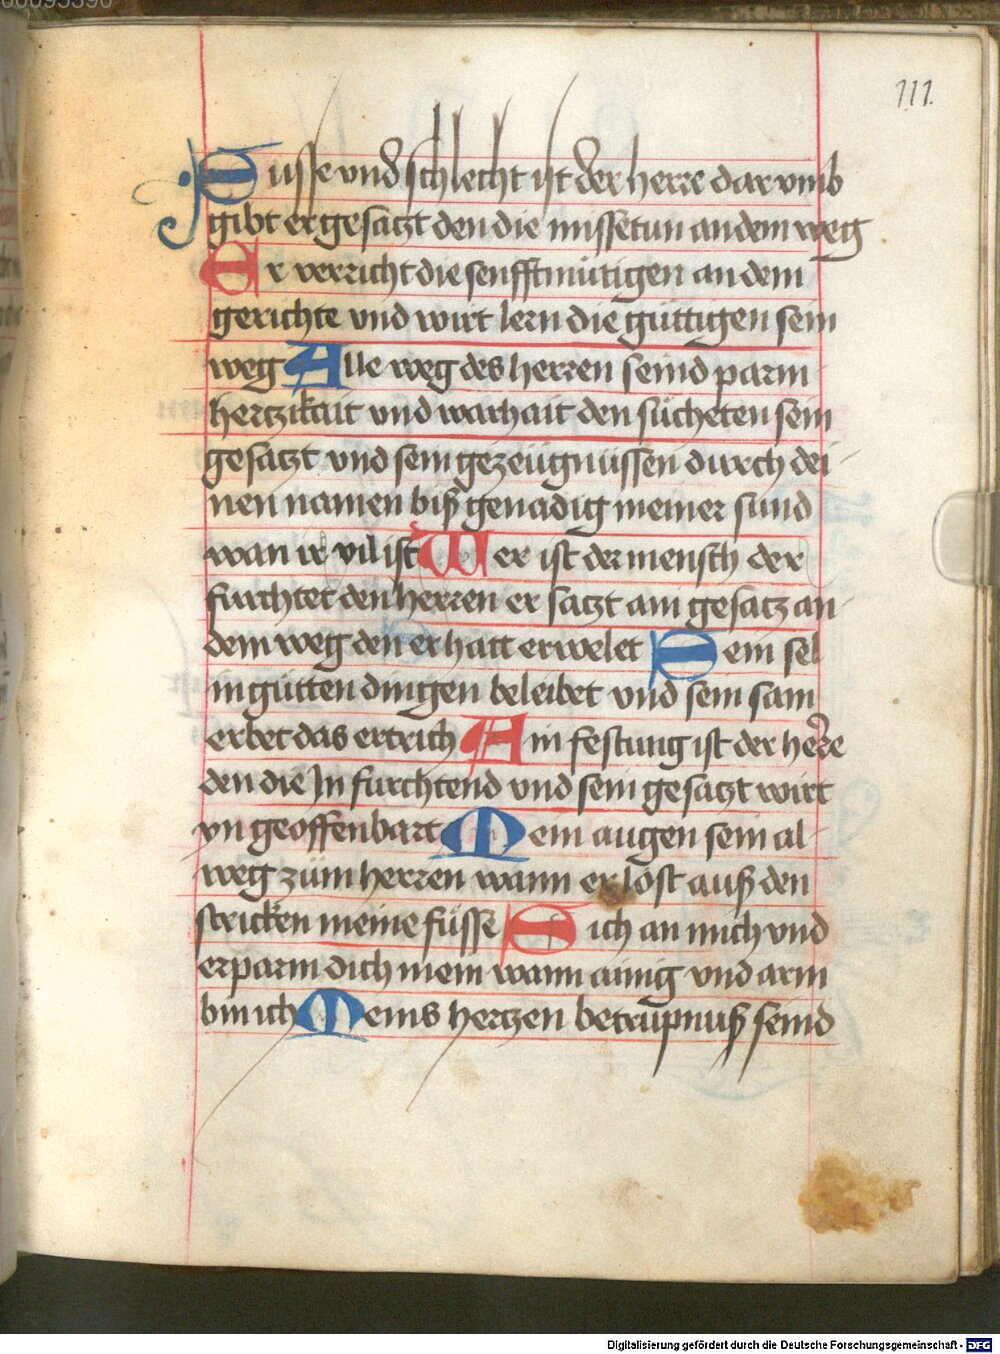 00095590
111.
Süsse vnd schlecht ist der herre dar vmb
gibt er gesatzt den die missetun an dem weg
Er verricht die senfftmütigen an dem
gerichte vnd wirt lern die güttigen sein
weg Alle weg des herren seind parm
hertzikait vnd warhait den sücheten sein
gesatzt vnd sein gezeügnüssen durch dei
nen namen biß genadig meiner sund
wan ir vil ist Wer ist der mensch der
furchtet den herren er satzt am gesatz an
dem weg den er hatt erwelet Sein sel
in gütten dingen beleibet vnd sein sam
erbet das ertrich Ain festung ist der herre
den die In furchtend vnd sein gesatzt wirt
yn geoffenbart Mein augen sein al
weg züm herren wann er lost auß den
stricken meine füsse Sich an mich vnd
erparm dich mein wann ainig vnd arm
bin ich Meins hertzen betrüpnuß seind
Digitalisierung gefördert durch die Deutsche Forschungsgemeinschaft - DFG